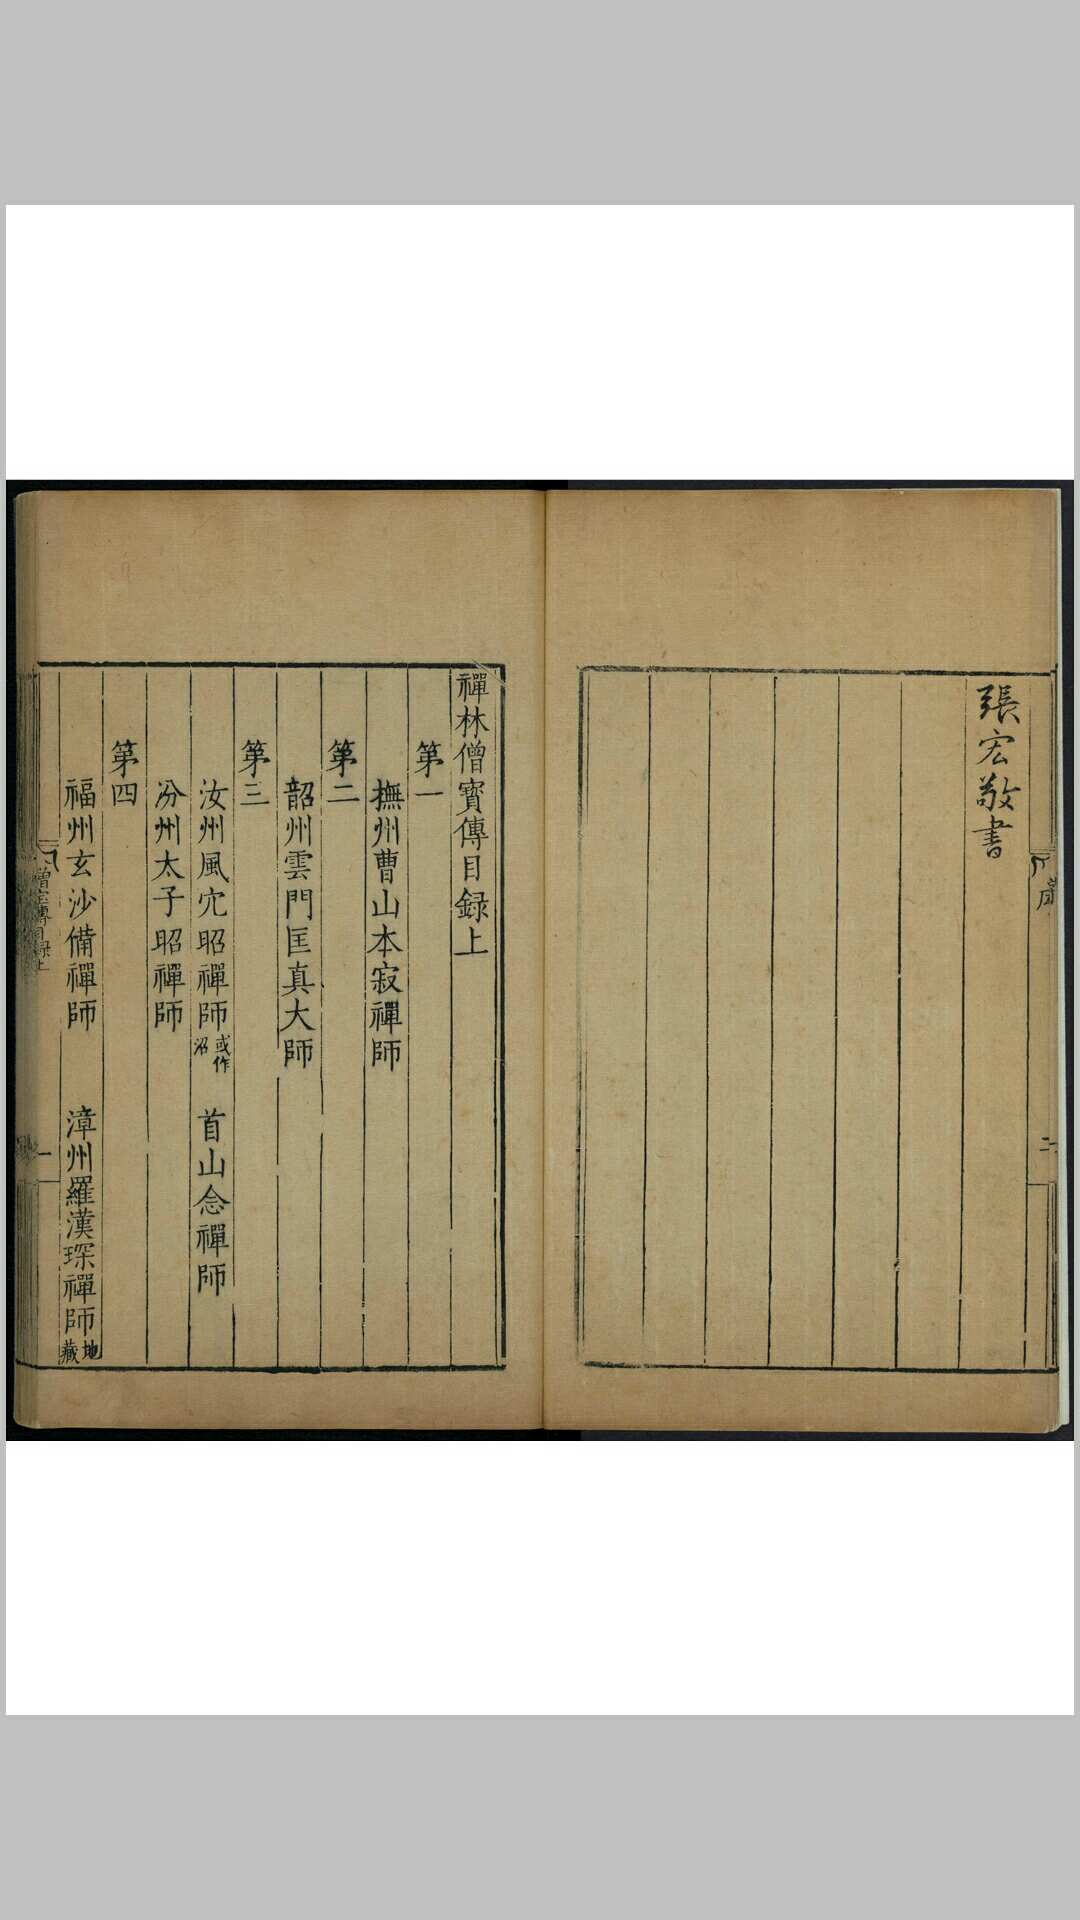 張宏敬書
二
禪林僧寶傳目録上
第一
撫州曹山本寂禪師
第二
韶州雲門匡真大師
第三
汝州風穴昭禪師 或作沼 首山念禪師
汾州太子昭禪師
第四
福州玄沙備禪師 漳州羅漢琛禪師 地藏
僧宝傳目録上
一